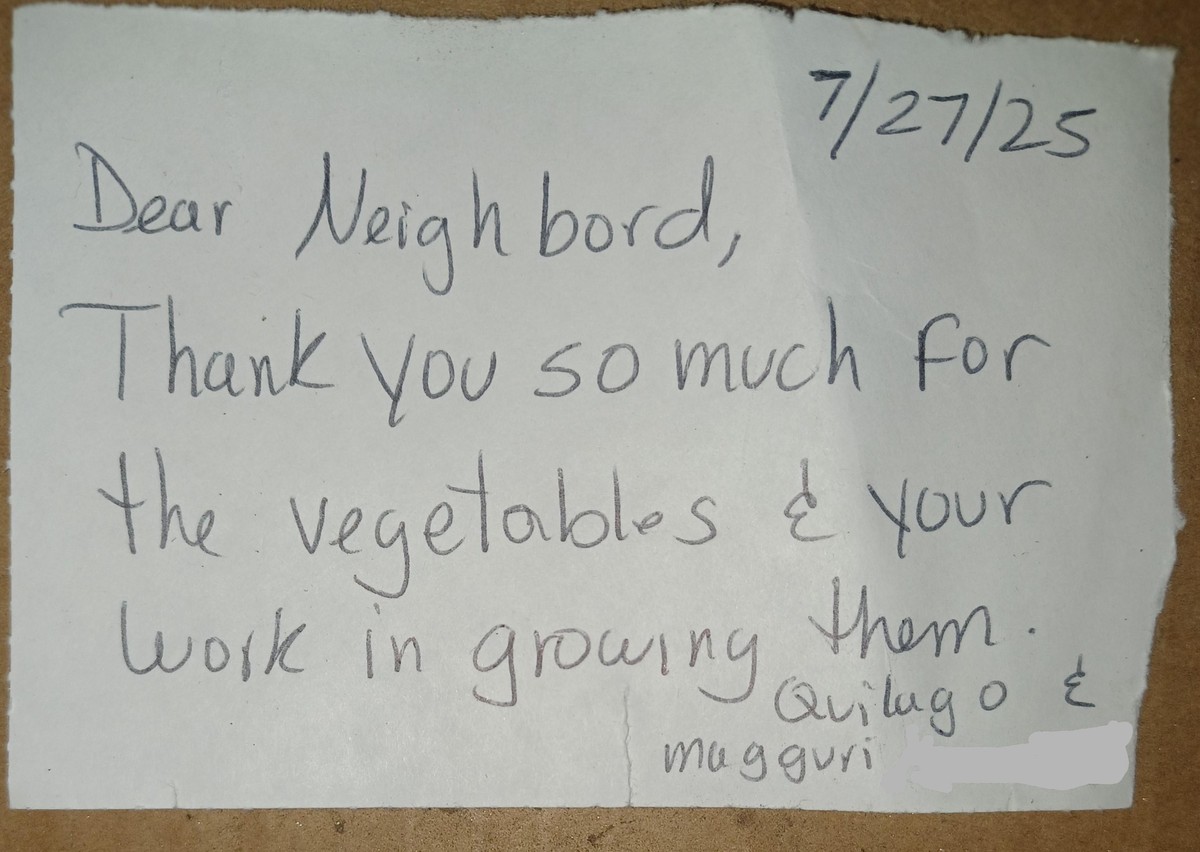 7/27/25
Dear Neighbord,
Thank you so much for
the vegetables & your
work in growing them.
Quilugo &
mugguri